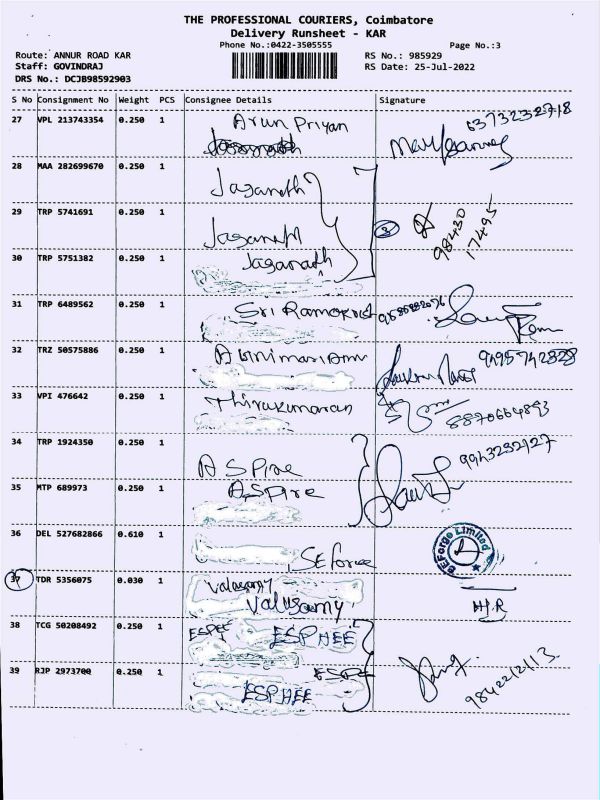 THE PROFESSIONAL COURIERS, Coimbatore
Delivery Runsheet - KAR
Phone No.:0422-3505555 Page No.:3
Route: ANNUR ROAD KAR RS No.: 985929
Staff: GOVINDRAJ RS Date: 25-Jul-2022
DRS No.: DCJB98592903
S No Consignment No Weight PCS Consignee Details Signature
27 VPL 213743354 0.250 1 Arun Priyan
28 MAA 282699670 0.250 1 Jaganath
29 TRP 5741691 0.250 1 Jaganath 3 98430
17495
30 TRP 5751382 0.250 1 Jaganath
31 TRP 6489562 0.250 1
32 TRZ 50575886 0.250 1
33 VPI 476642 0.250 1 Thirukumaran 8870664893
34 TRP 1924350 0.250 1 ASPire
35 MTP 689973 0.250 1 ASpire
36 DEL 527682866 0.610 1 SEforce SEForge Limited
37 TDR 5356075 0.030 1 Valusamy
Valusamy
38 TCG 50208492 0.250 1 ESPHEE
39 RJP 2973700 0.250 1
ESPHEE